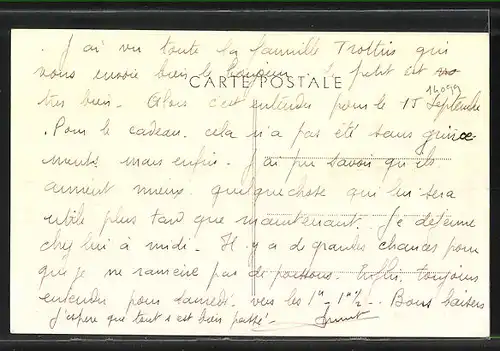 . J'ai vu toute la famille Trottin qui
vous envoie bien le bonjour. Le petit est
très bien. Alors c'est entendu pour le 15 Septembre
CARTE POSTALE
. Pour le cadeau. cela n'a pas été sans grince-
ments mais enfin. J'ai pu savoir qu'ils
aiment mieux quelquechose qui lui sera
utile plus tard que maintenant. Je déjeune
chez lui à midi. Il y a de grandes chances pour
que je ne ramène pas de poissons. Enfin. toujours
entendu pour samedi. vers les 1h - 1h½. Bons baisers
J'espère que tout s'est bien passé.